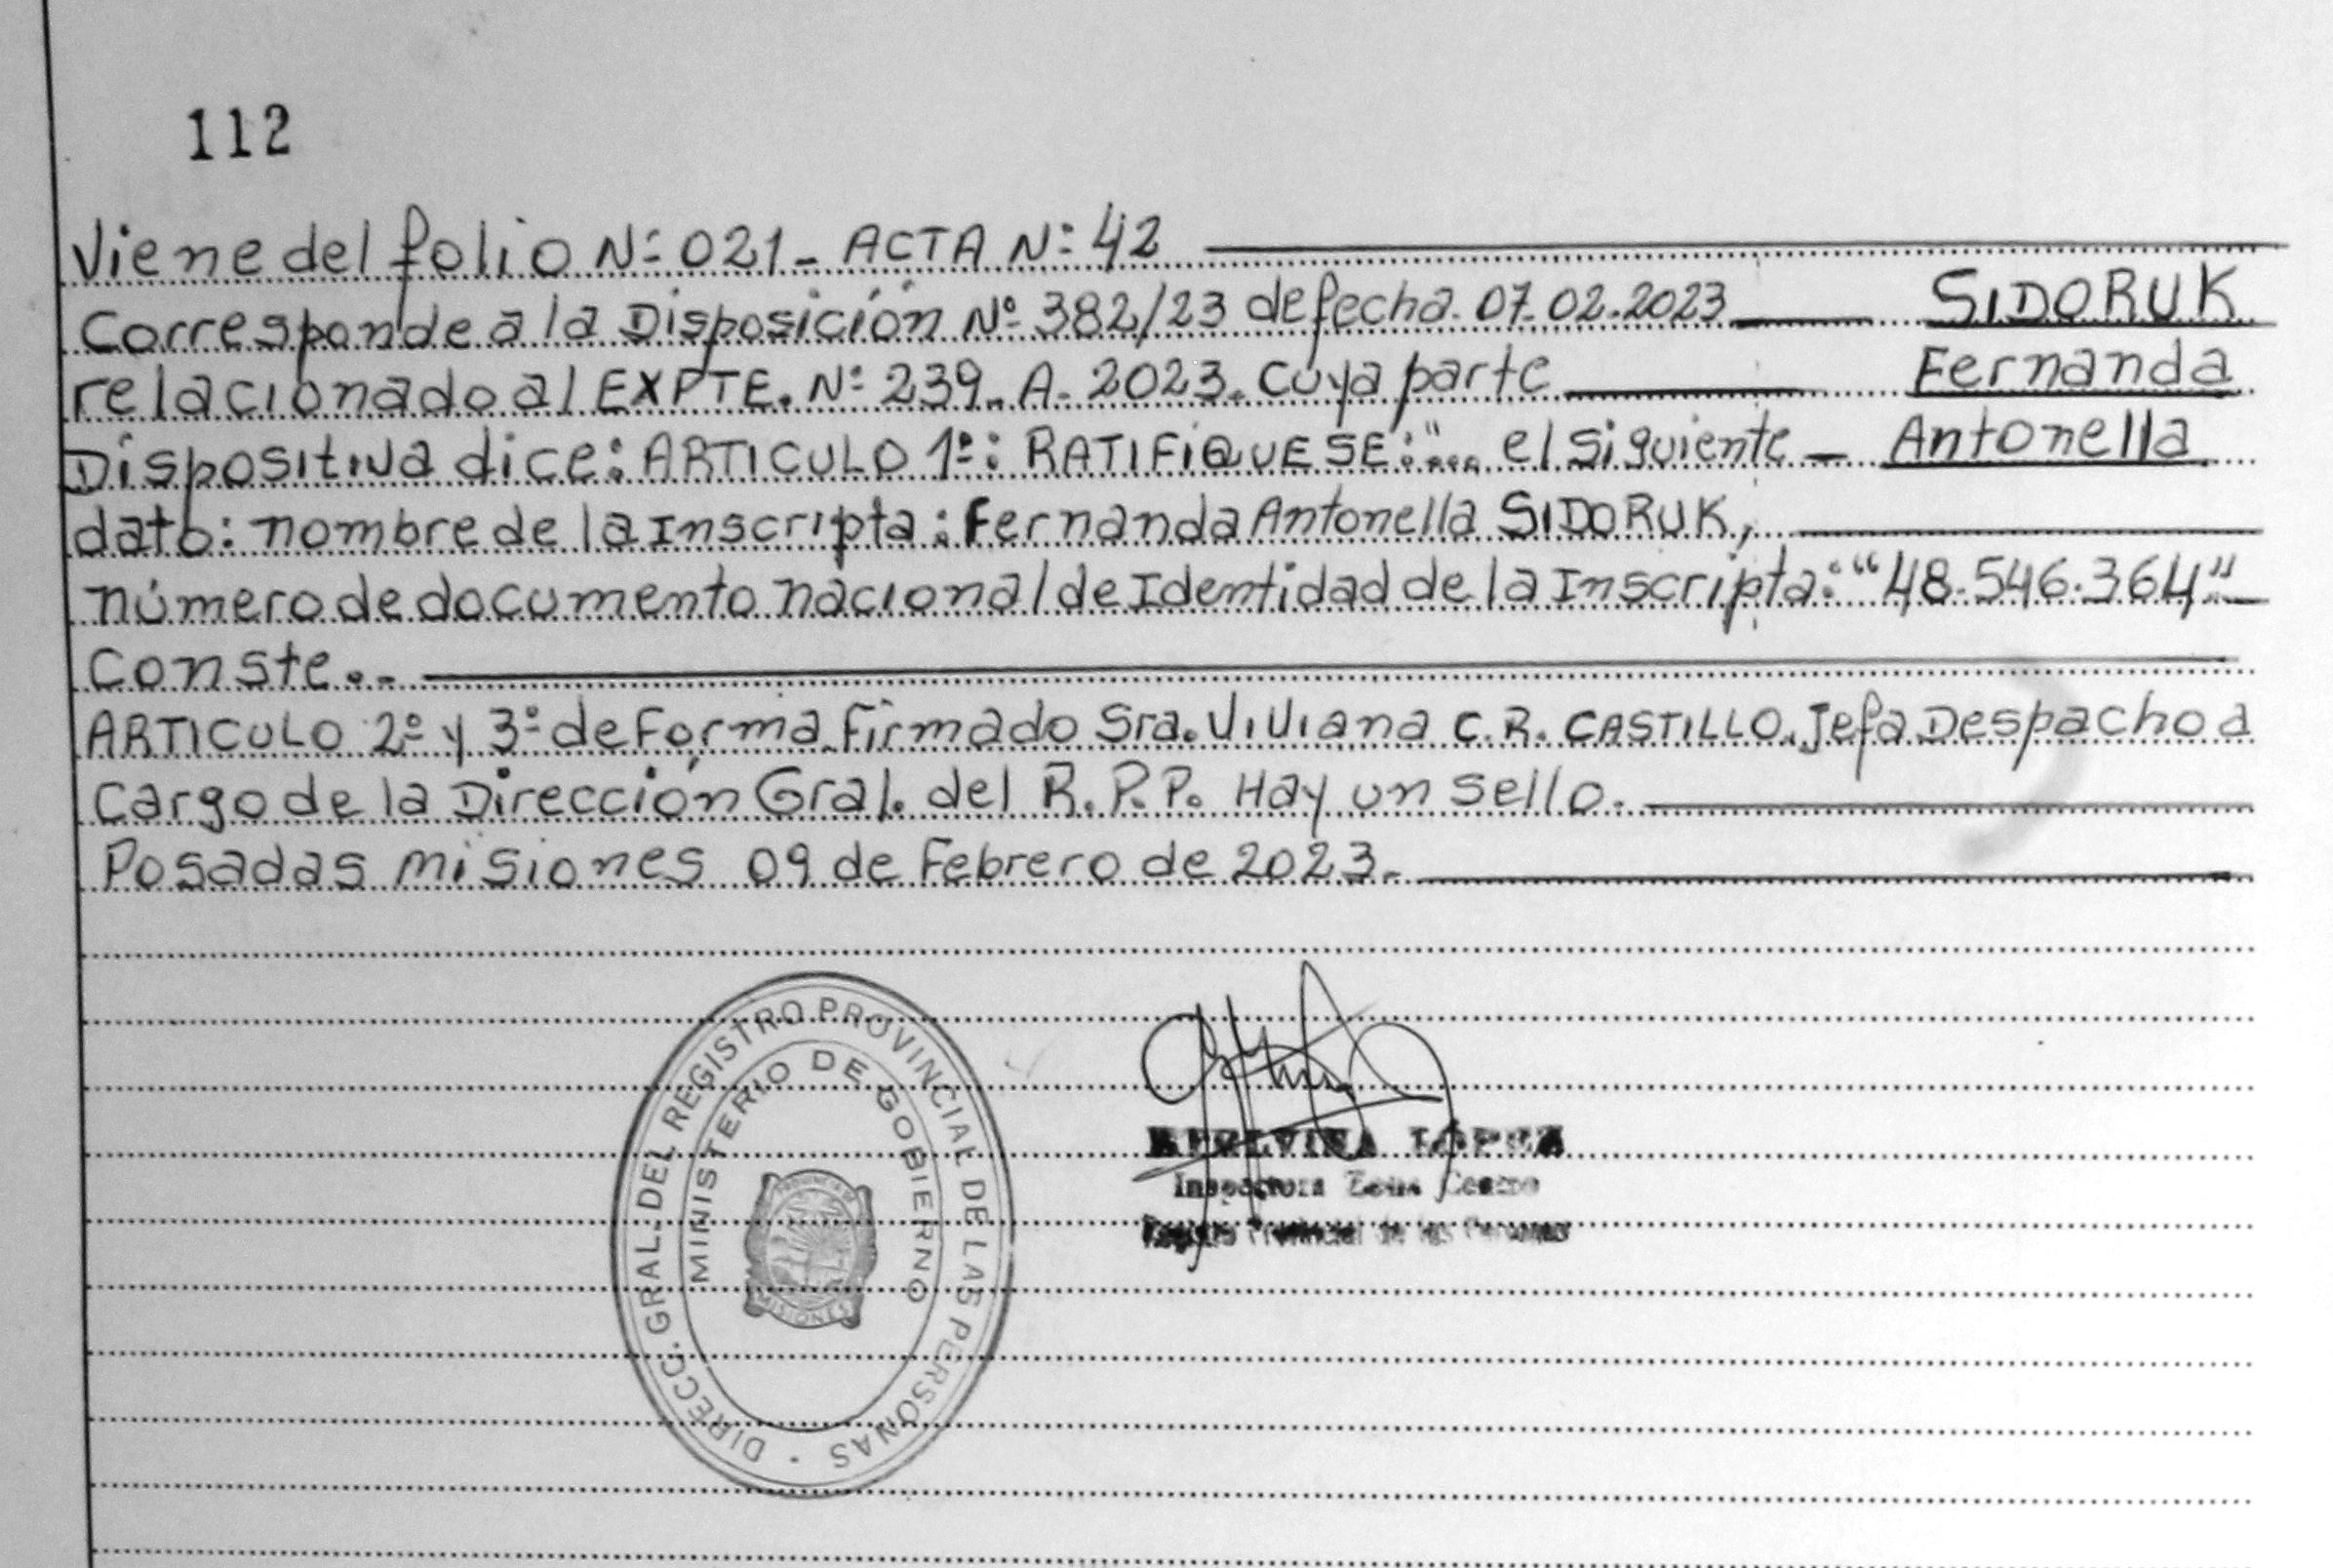 112
Viene del folio Nº 021_ ACTA Nº 42
Corresponde a la Disposición Nº 382/23 de fecha. 07.02.2023 SIDORUK
relacionado al EXPTE. Nº 239_ A. 2023. Cuya parte Fernanda
Dispositiva dice: ARTICULO 1º: RATIFIQUESE:".... el siguiente Antonella
dato: nombre de la Inscripta: Fernanda Antonella SIDORUK,
número de documento nacional de Identidad de la Inscripta: "48.546.364"
Conste.-
ARTICULO 2º y 3º de Forma. Firmado Sra. Viviana C.R. CASTILLO. Jefa Despacho a
Cargo de la Dirección Gral. del R.P.P. Hay un sello.
Posadas Misiones 09 de Febrero de 2023.
DIRECC. GRAL. DEL REGISTRO PROVINCIAL DE LAS PERSONAS
MINISTERIO DE GOBIERNO
MISIONES
Inspectora Zona Centro
Provincial de las Personas